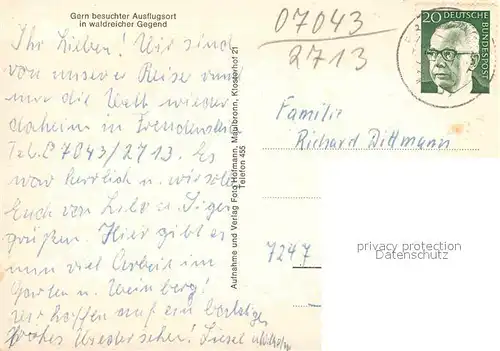 Gern besuchter Ausflugsort
in waldreicher Gegend
Ihr Lieben! Wir sind
von unserer Reise rund
um die Welt wieder
daheim in
Tel. 07043/2713. Es
war herrlich u. wir sollen
Euch von Lilo u.
grüßen. Hier gibt es
nun viel Arbeit im
Garten u. Weinberg!
Wir hoffen auf ein baldiges
frohes Wiedersehen! Liesel u. Wilhelm
Aufnahme und Verlag Foto Hofmann, Maulbronn, Klosterhof 21
Telefon 455
07043
2713
20 DEUTSCHE
BUNDESPOST
Familie
Richard Dittmann
7247
privacy protection
Datenschutz